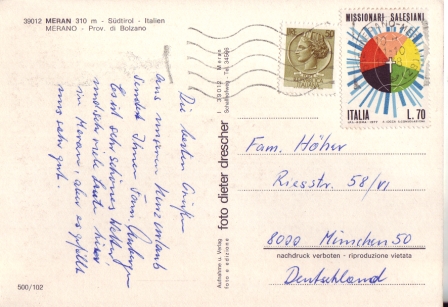 39012 MERAN 310 m - Südtirol - Italien
MERANO - Prov. di Bolzano
Die besten Grüße
aus unserem Kurzurlaub
sendet Ihnen Fam.
Es ist sehr schönes Wetter,
und sehr viele Leute hier
in Meran, aber es gefällt
uns sehr gut.
500/102
Aufnahme u. Verlag
foto e edizione
foto dieter drescher
I 39012 Meran
MISSIONARI SALESIANI
ITALIA L. 70
Fam. Höher
Riesstr. 58/VI
8000 München 50
nachdruck verboten - riproduzione vietata
Deutschland